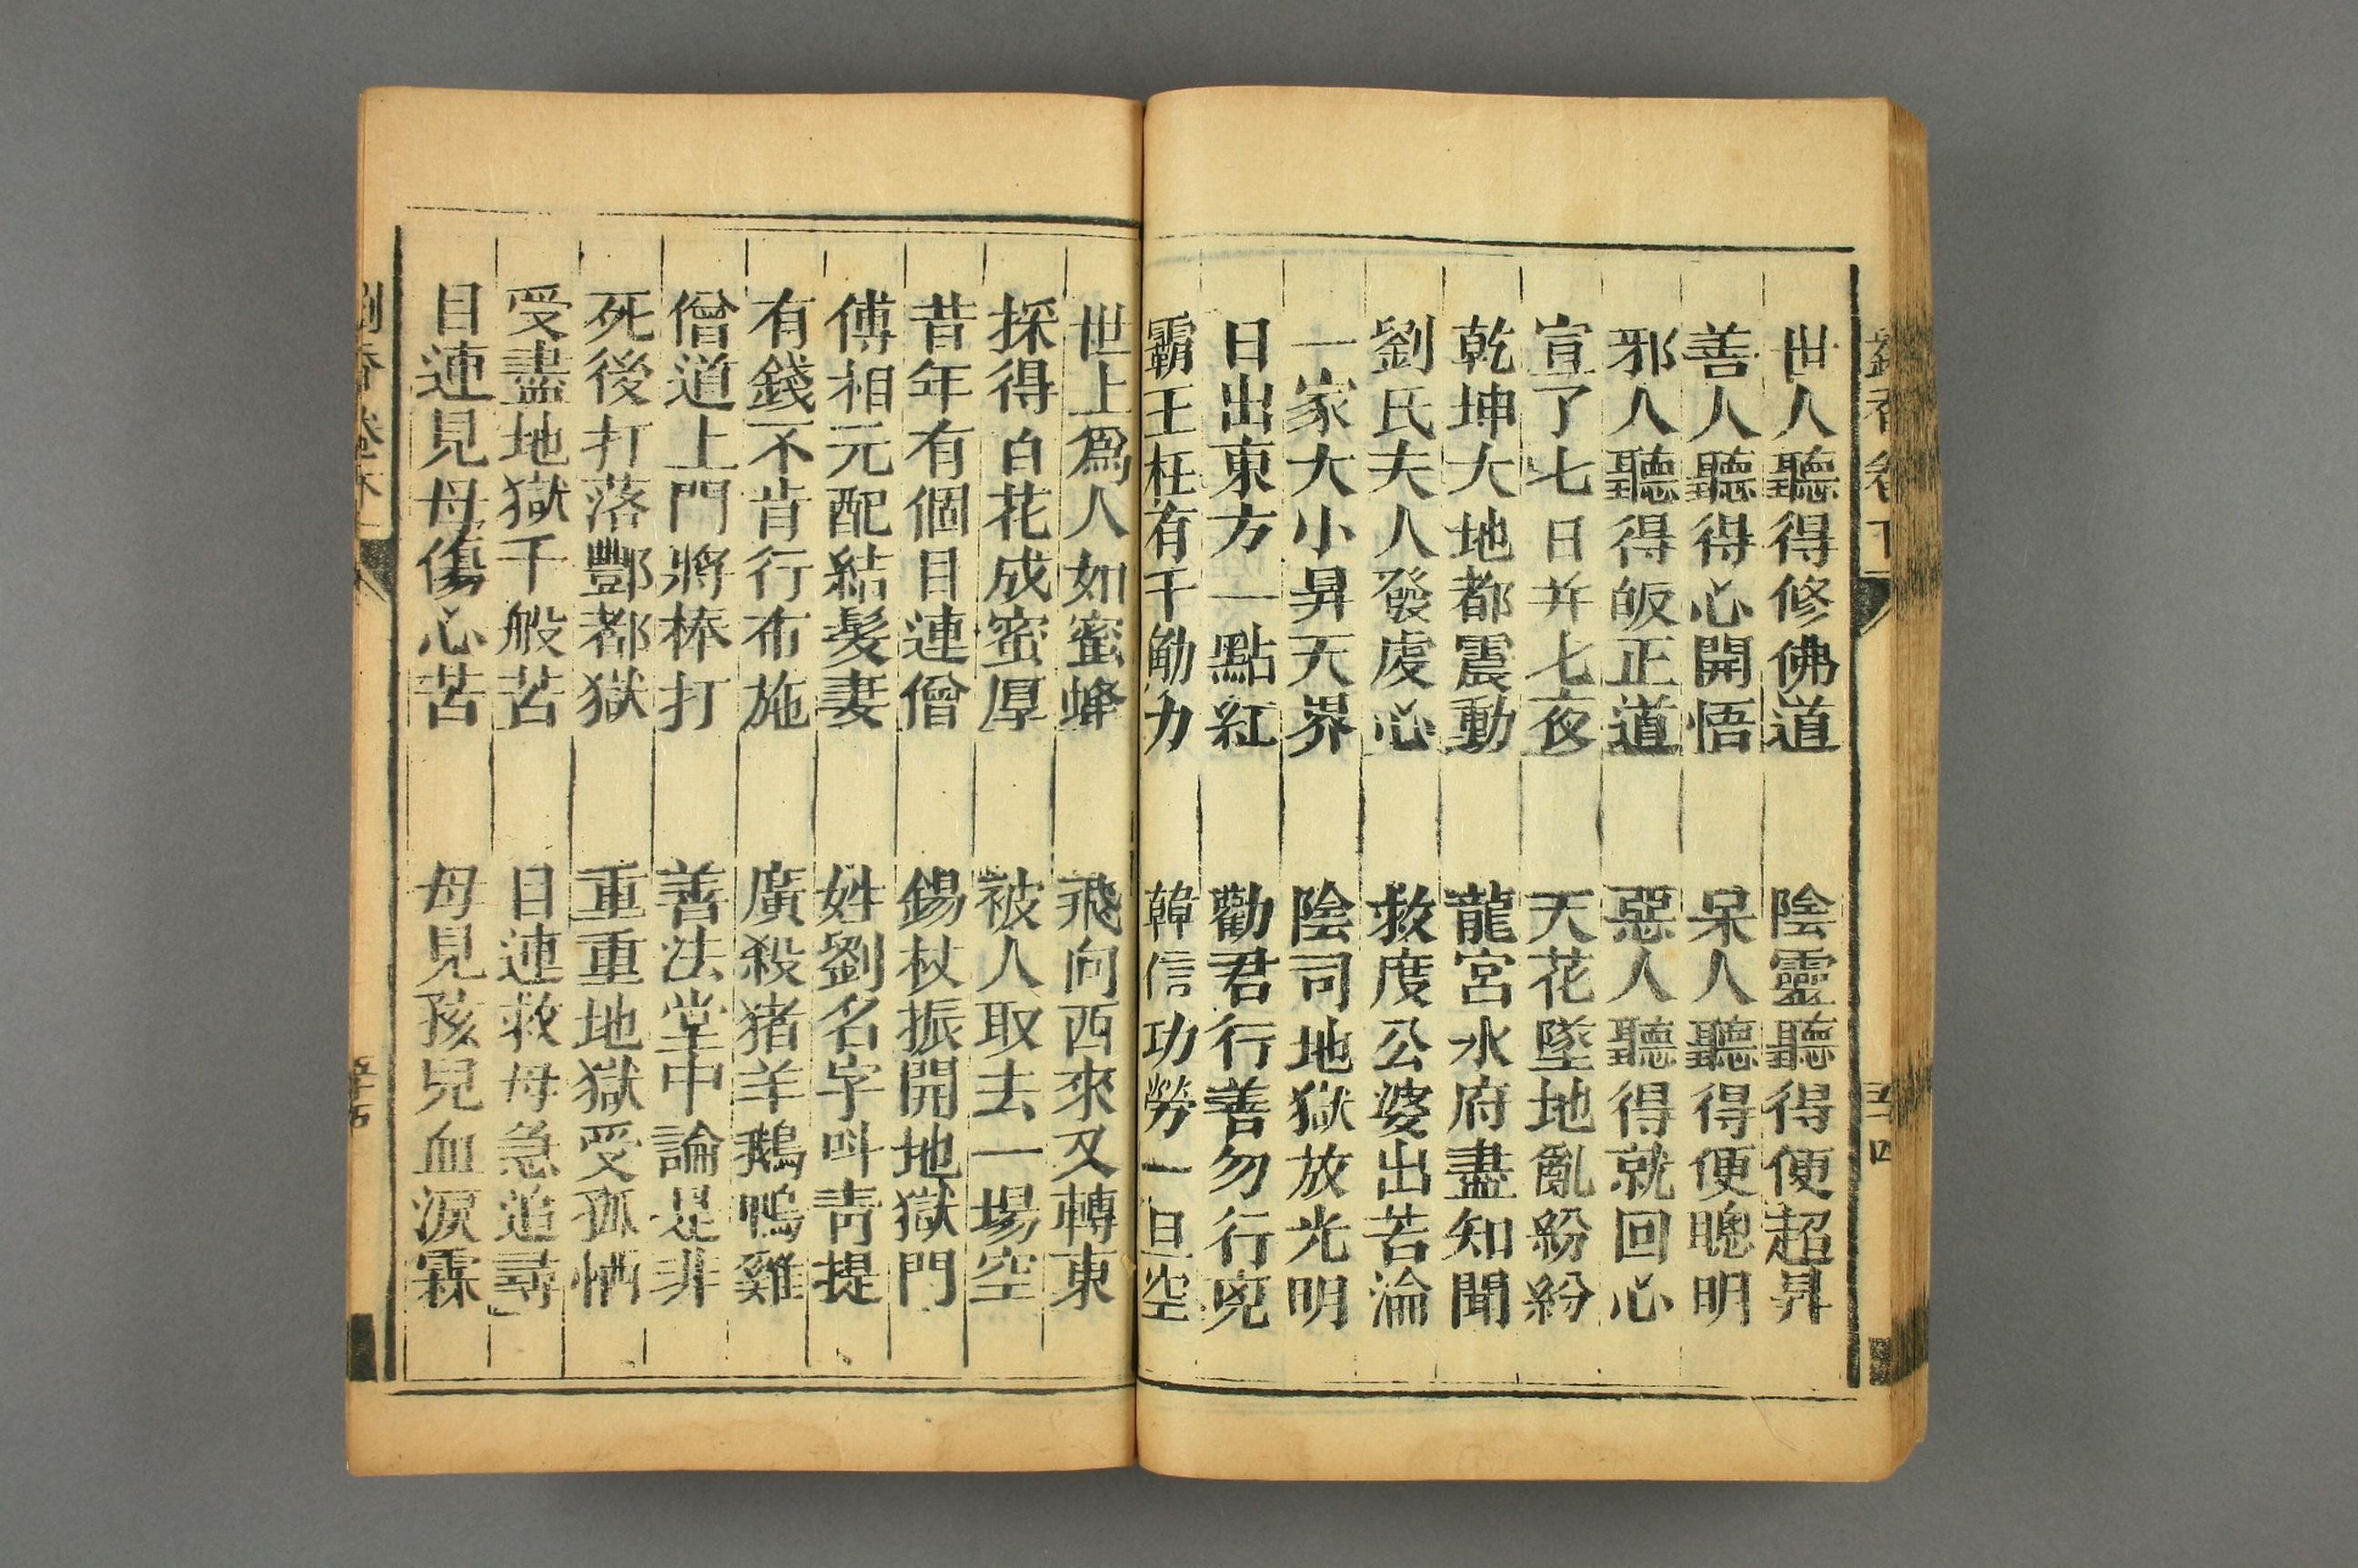 世人聽得修佛道　陰靈聽得便超昇
善人聽得心開悟　呆人聽得便聰明
邪人聽得皈正道　惡人聽得就回心
宣了七日并七夜　天花墜地亂紛紛
乾坤大地都震動　龍宮水府盡知聞
劉氏夫人發虔心　救度公婆出苦淪
一家大小昇天界　陰司地獄放光明
日出東方一點紅　勸君行善勿行兇
霸王枉有千觔力　韓信功勞一旦空
世上爲人如蜜蜂　飛向西來又轉東
採得百花成蜜厚　被人取去一場空
昔年有個目連僧　錫杖振開地獄門
傅相元配結髮妻　姓劉名字呌靑提
有錢不肯行布施　廣殺猪羊鵝鴨雞
僧道上門將棒打　善法堂中論是非
死後打落酆都獄　重重地獄受孤恓
受盡地獄千般苦　目連救母急追尋
目連見母傷心苦　母見孩兒血淚霖